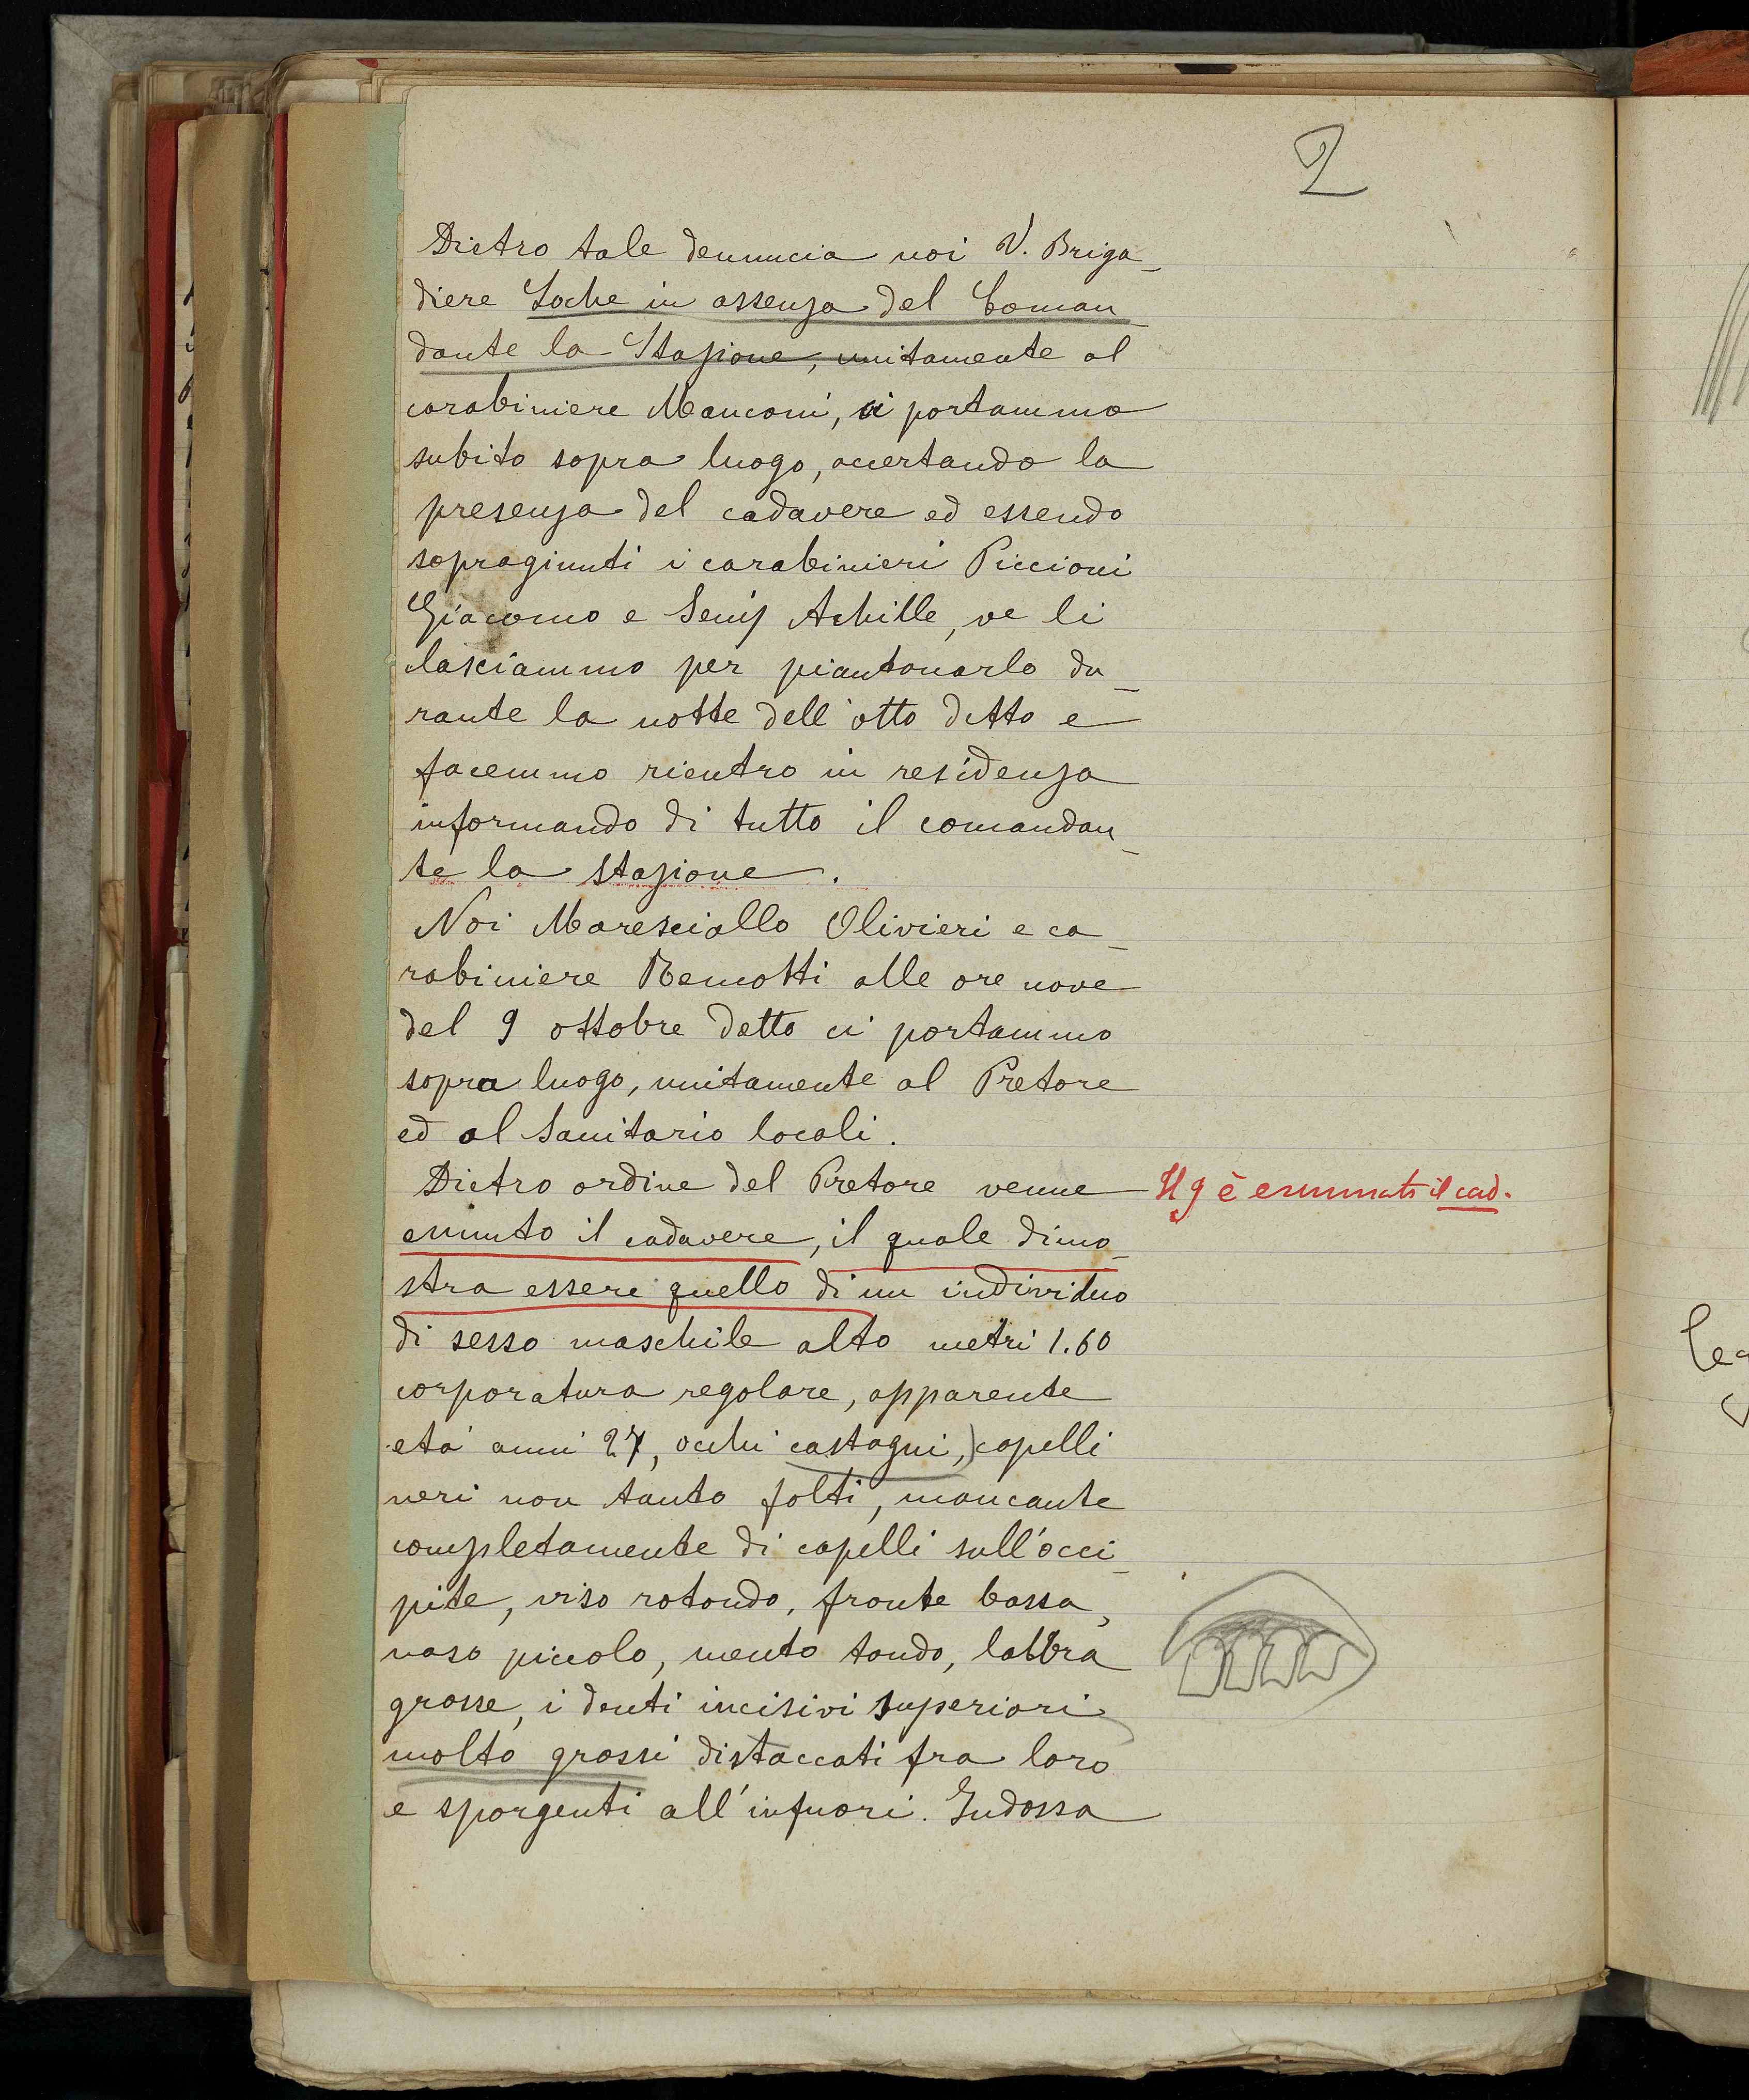 2
Dietro tale denuncia noi V. Briga_
diere Loche in assenza del Coman_
dante la Stazione, unitamente al
carabiniere Manconi, ci portammo
subito sopra luogo, accertando la
presenza del cadavere ed essendo
sopragiunti i carabinieri Piccioni
Giacomo e Achille, ve li
lasciammo per piantonarlo du_
rante la notte dell'otto detto e
facemmo rientro in residenza
informando di tutto il comandan_
te la stazione.
Noi Maresciallo Olivieri e ca_
rabiniere Remotti alle ore nove
del 9 ottobre detto ci portammo
sopra luogo, unitamente al Pretore
ed al Sanitario locali.
Dietro ordine del Pretore venne
Il 9 è esumato il cad.
esumato il cadavere, il quale dimo_
stra essere quello di un individuo
di sesso maschile alto metri 1.60
corporatura regolare, apparente
età anni 27, occhi castagni,) capelli
neri non tanto folti, mancante
completamente di capelli sull'occi_
pite, viso rotondo, fronte bassa,
naso piccolo, mento tondo, labbra
grosse, i denti incisivi superiori
molto grossi distaccati fra loro
e sporgenti all'infuori. Indossa